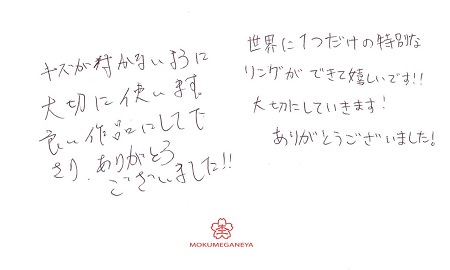 キズが付かないように
大切に使います。
良い作品にして下
さり、ありがとう
ございました!!
世界に1つだけの特別な
リングができて嬉しいです!!
大切にしていきます!
ありがとうございました!
MOKUMEGANEYA